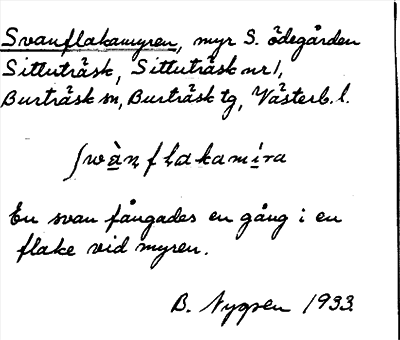 Svanflakamyren, myr S. ödegården
Sittuträsk, Sittuträsk nr 1,
Burträsk sn, Burträsk tg, Västerb. l.
ʃwàn̥fḷakamíra
En svan fångades en gång i en
flake vid myren.
B. Nygren 1933.